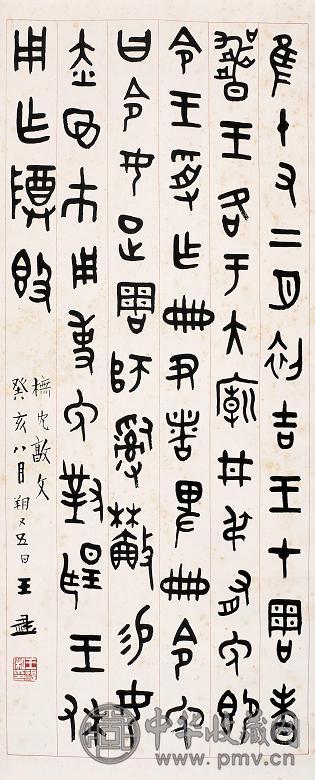 隹十又二月初吉王才周昧
爽王各于大廟井弔又免即
令王受乍冊尹書卑冊令免
曰令女疋周師𤔲易女
赤巿用事免對揚王休
用乍尊𣪘
橅免敦文
癸亥八月朔又五日王
中华收藏网
www.pmv.cn